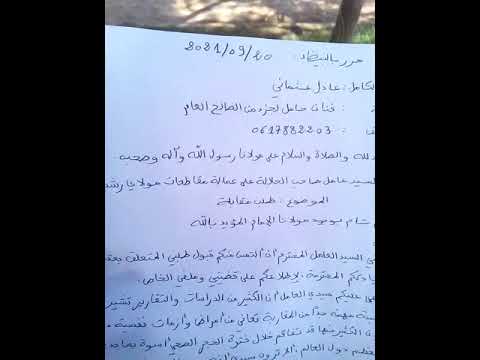 حرر بالبيضاء: 2021/09/20
الكامل: عادل عثماني
: فنان حامل لجزء من الصالح العام
: 0617882203
لله والصلاة والسلام على مولانا رسول الله وآله وصحبه.
السيد عامل صاحب الجلالة على عمالة مقاطعات مولاي رشيد
الموضوع: طلب مقابلة
سلام بوجود مولانا الإمام المؤيد بالله
السيد العامل المحترم أن ألتمس منكم قبول طلبي المتعلق
المحترمة، لإطلاعكم على قضيتي وملفي الخاص.
عليكم سيدي العامل أن الكثير من الدراسات والتقارير تشير
من المغاربة تعاني من أمراض وأزمات نفسية،
الكثير منها قد تفاقم خلال فترة الحجر الصحي أسوة
دول العالم